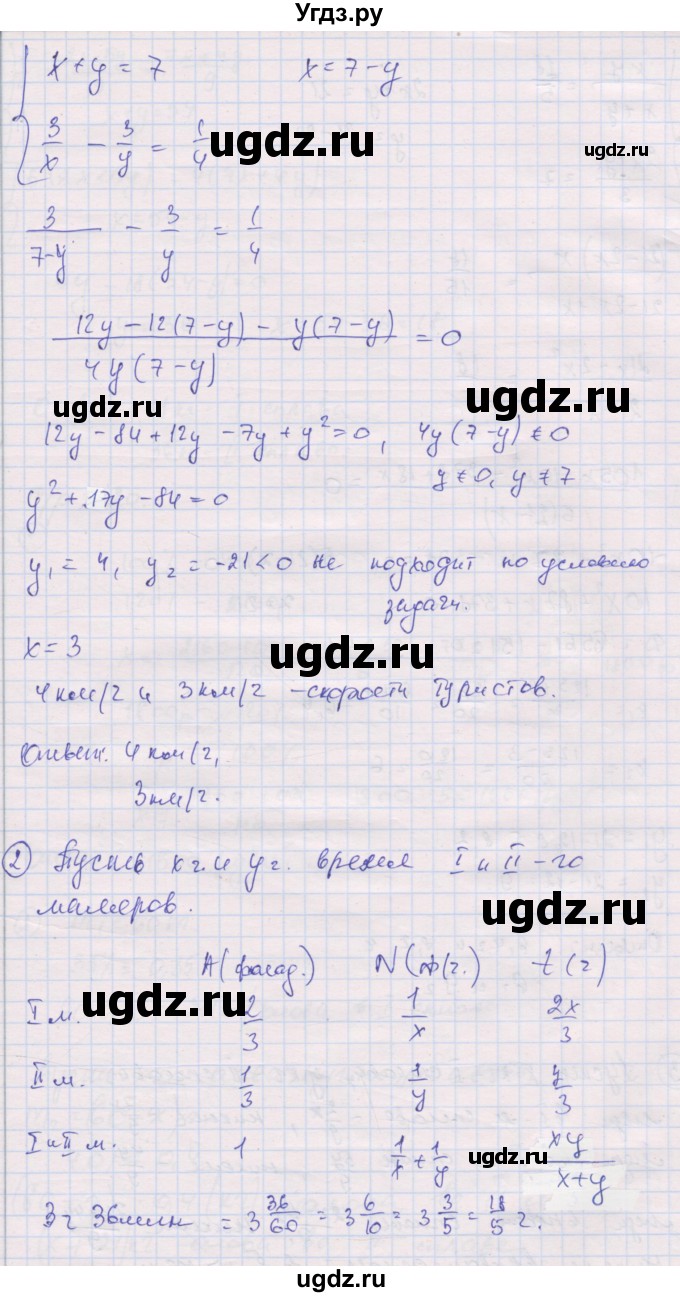 Угдз.ру
x+y = 7    x = 7-y
3/x - 3/y = 1/4
ugdz.ru
ugdz.ru
3/(7-y) - 3/y = 1/4
(12y - 12(7-y) - y(7-y))/(4y(7-y)) = 0
ugdz.ru
12y - 84 + 12y - 7y + y² = 0, 4y(7-y) ≠ 0
y ≠ 0, y ≠ 7
y² + 17y - 84 = 0
y₁ = 4, y₂ = -21 < 0 не подходит по условию
задачи.
ugdz.ru
x = 3
4 км/г и 3 км/г - скорости туристов.
Ответ. 4 км/г,
3 км/г.
② Пусть x г. и y г. время I и II-го
ugdz.ru
маляров.
A (фасад.)    N (ф/г.)    t (г)
ugdz.ru
I м.    2/3    1/x    2x/3
II м.    1/3    1/y    y/3
I и II м.    1    1/x + 1/y    xy/(x+y)
ugdz.ru
3 г 36 мин = 3 36/60 = 3 6/10 = 3 3/5 = 18/5 г.
ugdz.ru